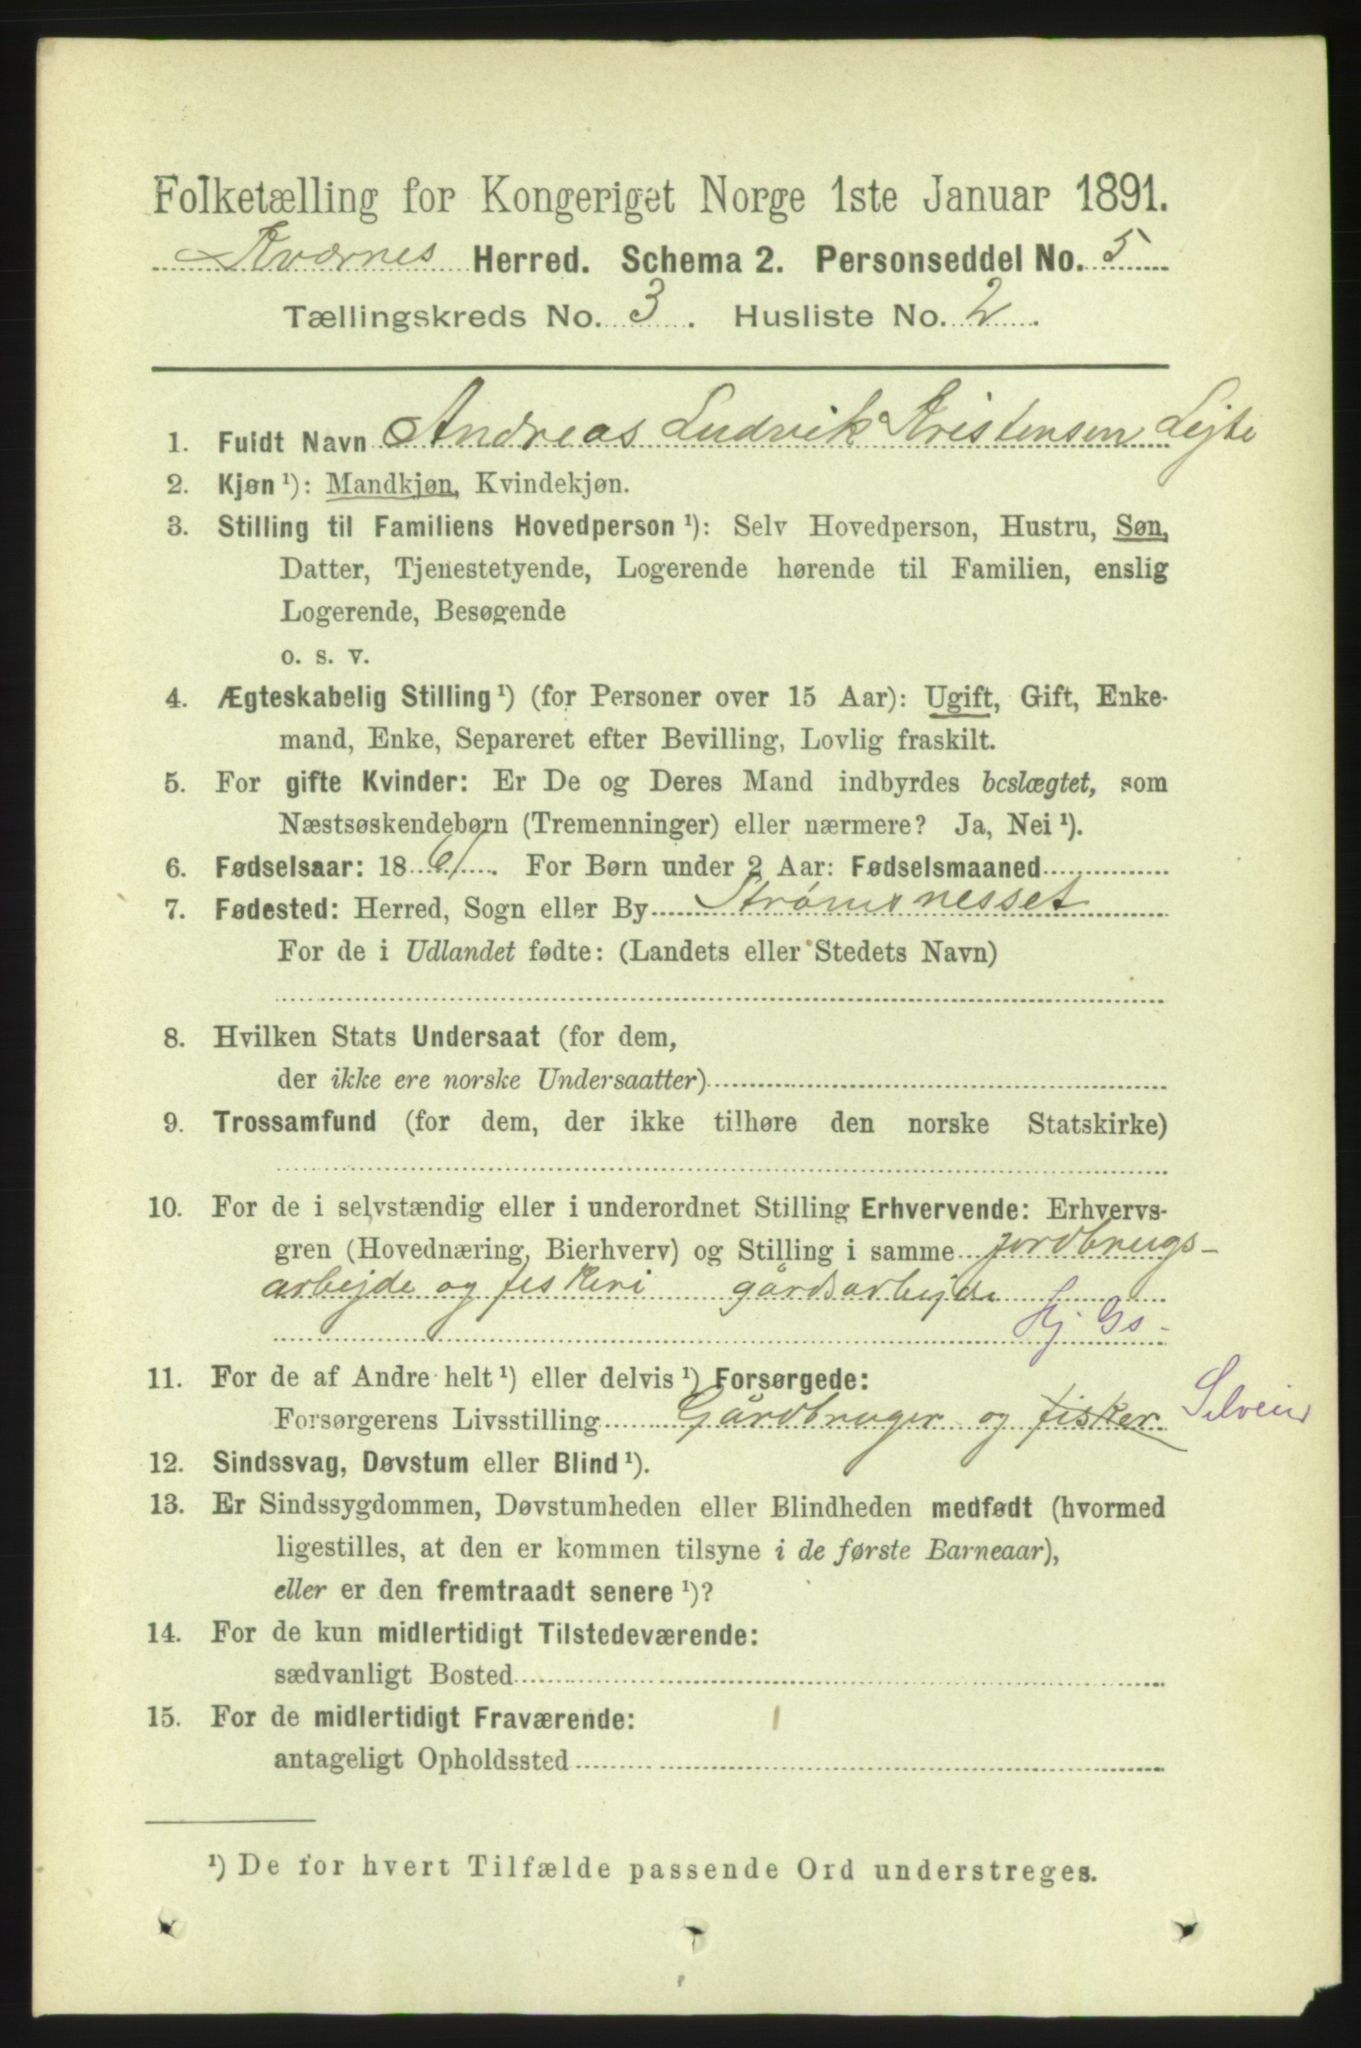 Folketælling for Kongeriget Norge 1ste Januar 1891.
Kværnes Herred. Schema 2. Personseddel No. 5
Tællingskreds No. 3. Husliste No. 2.
1. Fuldt Navn Andreas Ludvik Kristensen Lejte
2. Kjøn ¹): Mandkjøn, Kvindekjøn.
3. Stilling til Familiens Hovedperson ¹): Selv Hovedperson, Hustru, Søn,
Datter, Tjenestetyende, Logerende hørende til Familien, enslig
Logerende, Besøgende
o. s. v.
4. Ægteskabelig Stilling ¹) (for Personer over 15 Aar): Ugift, Gift, Enke-
mand, Enke, Separeret efter Bevilling, Lovlig fraskilt.
5. For gifte Kvinder: Er De og Deres Mand indbyrdes beslægtet, som
Næstsøskendebørn (Tremenninger) eller nærmere? Ja, Nei ¹).
6. Fødselsaar: 1861. For Børn under 2 Aar: Fødselsmaaned
7. Fødested: Herred, Sogn eller By Strømsnesset
For de i Udlandet fødte: (Landets eller Stedets Navn)
8. Hvilken Stats Undersaat (for dem,
der ikke ere norske Undersaatter)
9. Trossamfund (for dem, der ikke tilhøre den norske Statskirke)
10. For de i selvstændig eller i underordnet Stilling Erhvervende: Erhvervs-
gren (Hovednæring, Bierhverv) og Stilling i samme jordbrugs-
arbejde og fiskeri gårdsarbejde
Hj. Gs-
11. For de af Andre helt ¹) eller delvis ¹) Forsørgede:
Forsørgerens Livsstilling Gårdbruger og fisker Selveier
12. Sindssvag, Døvstum eller Blind ¹).
13. Er Sindssygdommen, Døvstumheden eller Blindheden medfødt (hvormed
ligestilles, at den er kommen tilsyne i de første Barneaar),
eller er den fremtraadt senere ¹)?
14. For de kun midlertidigt Tilstedeværende:
sædvanligt Bosted
15. For de midlertidigt Fraværende:
antageligt Opholdssted
¹) De for hvert Tilfælde passende Ord understreges.